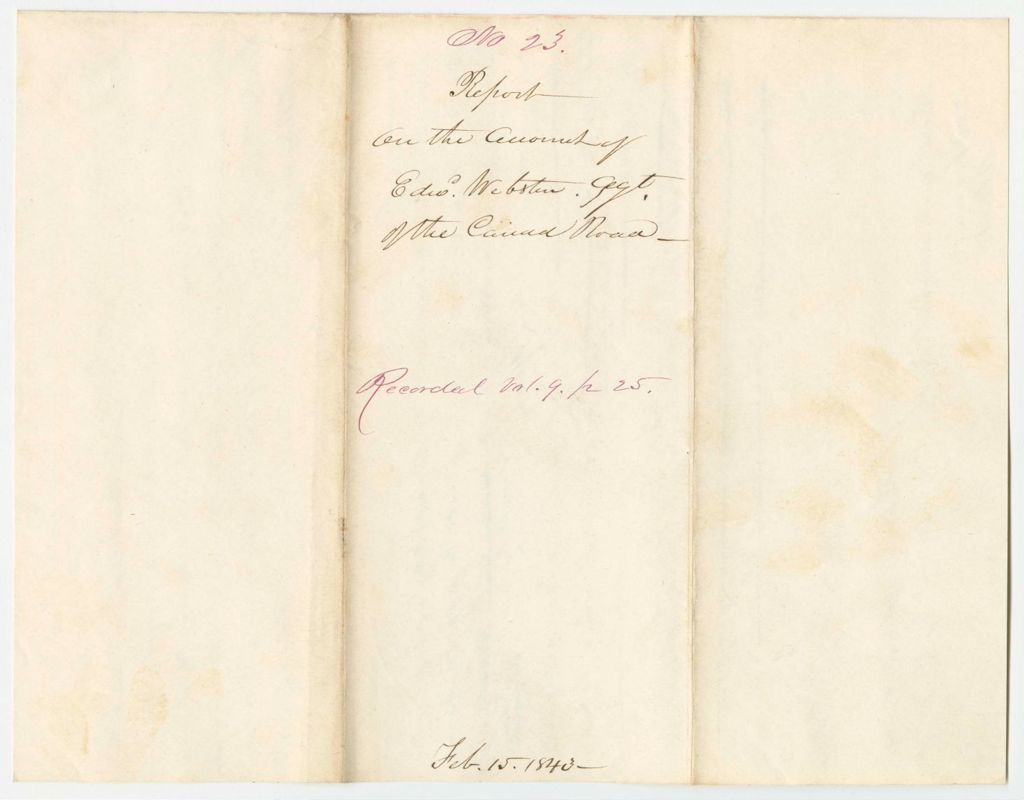 No 23.
Report
on the Account of
Edwd. Webster. Agt.
of the Canada Road
Recorded Vol. 9. p 25.
Feb. 15. 1843